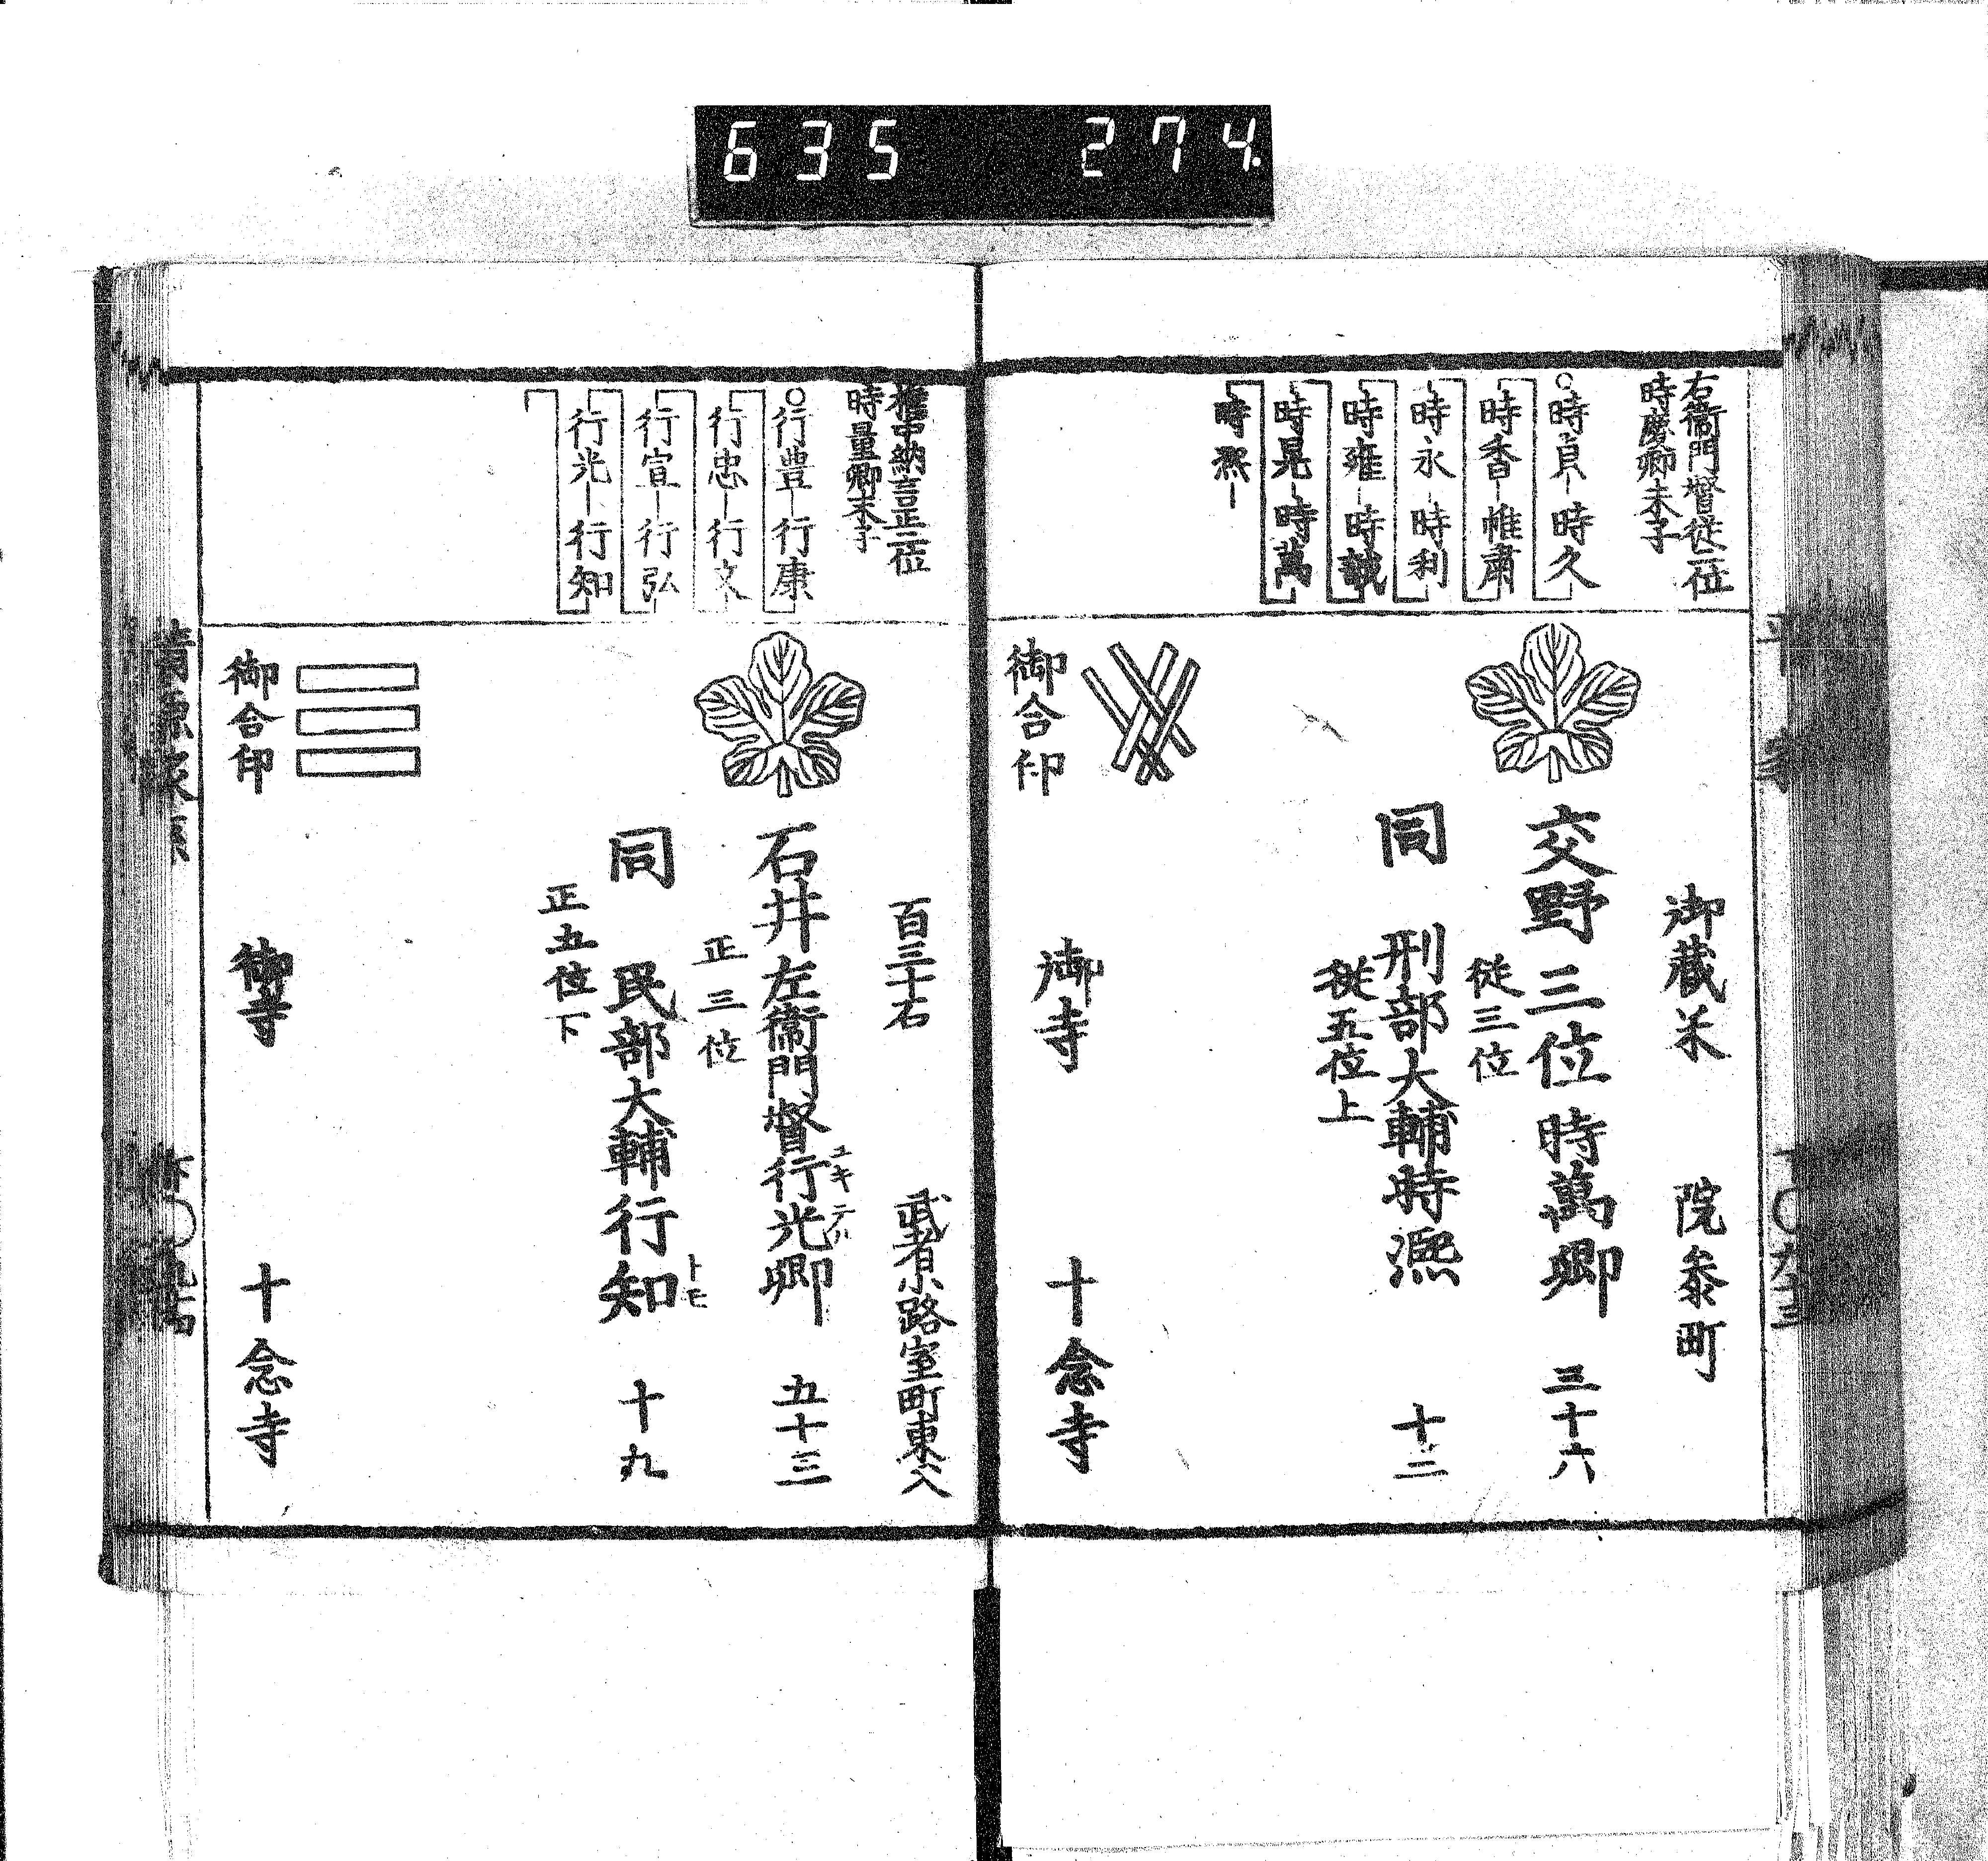 635 274
右衛門督従二位
時慶卿末子
時貞―時久
時香―惟肅
時永―時利
時雍―時誠
時晃―時萬
時凞―
御蔵米 院参町
交野三位時萬卿 三十六
従三位
同 刑部大輔時凞 十二
従五位上
御合印 御寺 十念寺
権中納言正二位
時量卿末子
行豊―行康
行忠―行文
行宣―行弘
行光―行知
百三十石 武者小路室町東ヘ入
石井左衛門督行光卿 五十三
ユキ テル
正三位
同 民部大輔行知 十九
トモ
正五位下
御合印 御寺 十念寺